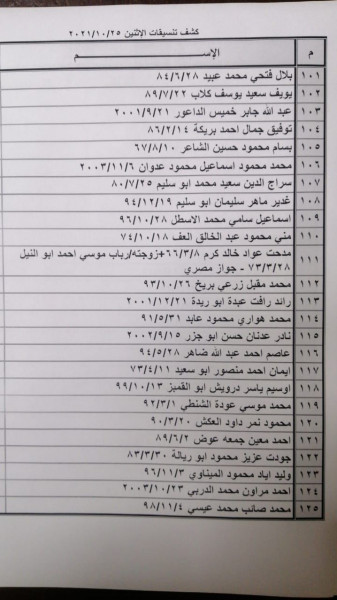 كشف تنسيقات الاثنين ٢٠٢١/١٠/٢٥
م الإســـم
١٠١ بلال فتحي محمد عبيد ٨٤/٦/٢٨
١٠٢ يويف سعيد يوسف كلاب ٨٩/٧/٢٢
١٠٣ عبد الله جابر خميس الداعور ٢٠٠١/٩/٢١
١٠٤ توفيق جمال احمد بريكة ٨٦/٢/١٤
١٠٥ بسام محمود حسين الشاعر ٦٧/٨/١٠
١٠٦ محمد محمود اسماعيل محمود عدوان ٢٠٠٣/١١/٦
١٠٧ سراج الدين سعيد محمد ابو سليم ٨٠/٧/٢٥
١٠٨ غدير ماهر سليمان ابو سليم ٩٤/١٢/١٩
١٠٩ اسماعيل سامي محمد الاسطل ٩٦/١٠/٢٨
١١٠ مني محمود عبد الخالق العف ٧٤/١٠/١٨
١١١ مدحت عواد خالد كرم ٦٦/٣/٨+زوجته/رباب موسي احمد ابو النيل
٧٣/٣/٢٨ - جواز مصري
١١٢ محمد مقبل زرعي بريخ ٩٣/١٠/٢٦
١١٣ رائد رافت عبدة ابو ريدة ٢٠٠١/١٢/٢١
١١٤ محمد هواري محمود عابد ٩١/٥/٣١
١١٥ نادر عدنان حسن ابو جزر ٢٠٠٢/٩/١٥
١١٦ عاصم احمد عبد الله ضاهر ٩٤/٥/٢٨
١١٧ ايمان احمد منصور ابو سعيد ٧٣/٤/١١
١١٨ اوسيم ياسر درويش ابو القمبز ٩٩/١٠/١٣
١١٩ محمد موسي عودة الشنطي ٩٢/٣/١
١٢٠ محمود نمر داود العكش ٩٠/٣/٢٠
١٢١ احمد معين جمعه عوض ٨٩/٦/٢
١٢٢ جودت عزيز محمود ابو ريالة ٨٣/٣/٣٠
١٢٣ وليد اياد محمود الميناوي ٩٦/١١/٣
١٢٤ احمد مراون محمد الدربي ٢٠٠٣/١٠/٢٣
١٢٥ محمد صائب محمد عيسي ٩٨/١١/٤